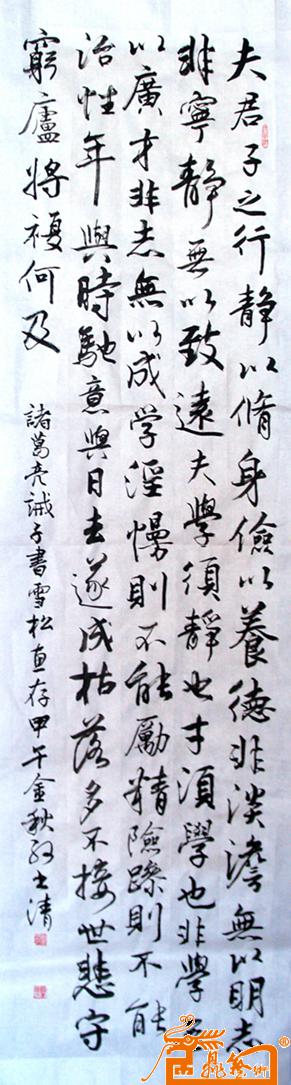 夫君子之行靜以脩身儉以養德非淡澹無以明志
非寧靜無以致遠夫學須靜也才須學也非學無
以廣才非志無以成学淫慢則不能勵精險躁則不能
治性年與時馳意與日去遂成枯落多不接世悲守
窮廬將複何及
諸葛亮誡子書雪松直存甲午金秋士清